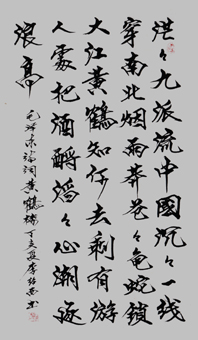 茫々九派流中國沉々一线
穿南北烟雨莽苍々龜蛇鎖
大江黄鶴知何去剩有游
人處把酒酹滔々心潮逐
浪高
毛泽东诗词黄鶴楼丁亥夏李书